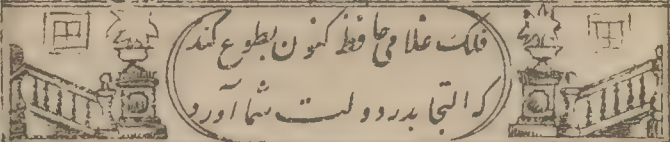 فلک غلامی حافظ کنون بطوع کند
که التجا بدر دولت شما آورد